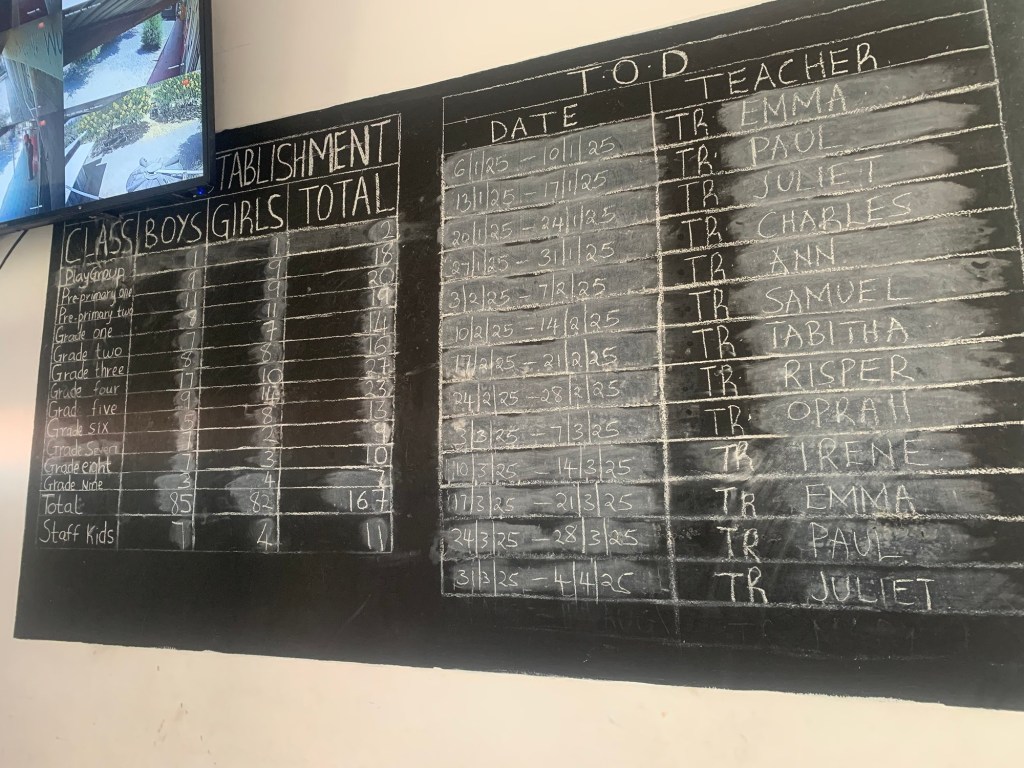 TABLISHMENT
CLASS BOYS GIRLS TOTAL
PlayGroup 1 1 2
Pre-primary one 9 9 18
Pre-primary two 11 9 20
Grade one 8 11 19
Grade two 7 7 14
Grade three 8 8 16
Grade four 17 10 27
Grad five 9 14 23
Grade six 5 8 13
Grade Seven 7 2 9
Grade eight 7 3 10
Grade Nine 3 4 7
Total 85 82 167
Staff Kids 7 4 11
T.O.D
DATE TEACHER
6|1|25 - 10|1|25 TR EMMA
13|1|25 - 17|1|25 TR. PAUL
20|1|25 - 24|1|25 TR JULIET
27|1|25 - 31|1|25 TR. CHARLES
3|2|25 - 7|2|25 TR ANN
10|2|25 - 14|2|25 TR SAMUEL
17|2|25 - 21|2|25 TR TABITHA
24|2|25 - 28|2|25 TR RISPER
3|3|25 - 7|3|25 TR. OPRAH
10|3|25 - 14|3|25 TR IRENE
17|3|25 - 21|3|25 TR EMMA
24|3|25 - 28|3|25 TR PAUL
31|3|25 - 4|4|25 TR JULIET